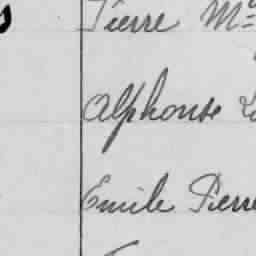 Pierre M
Alphonse
Emile Pierre